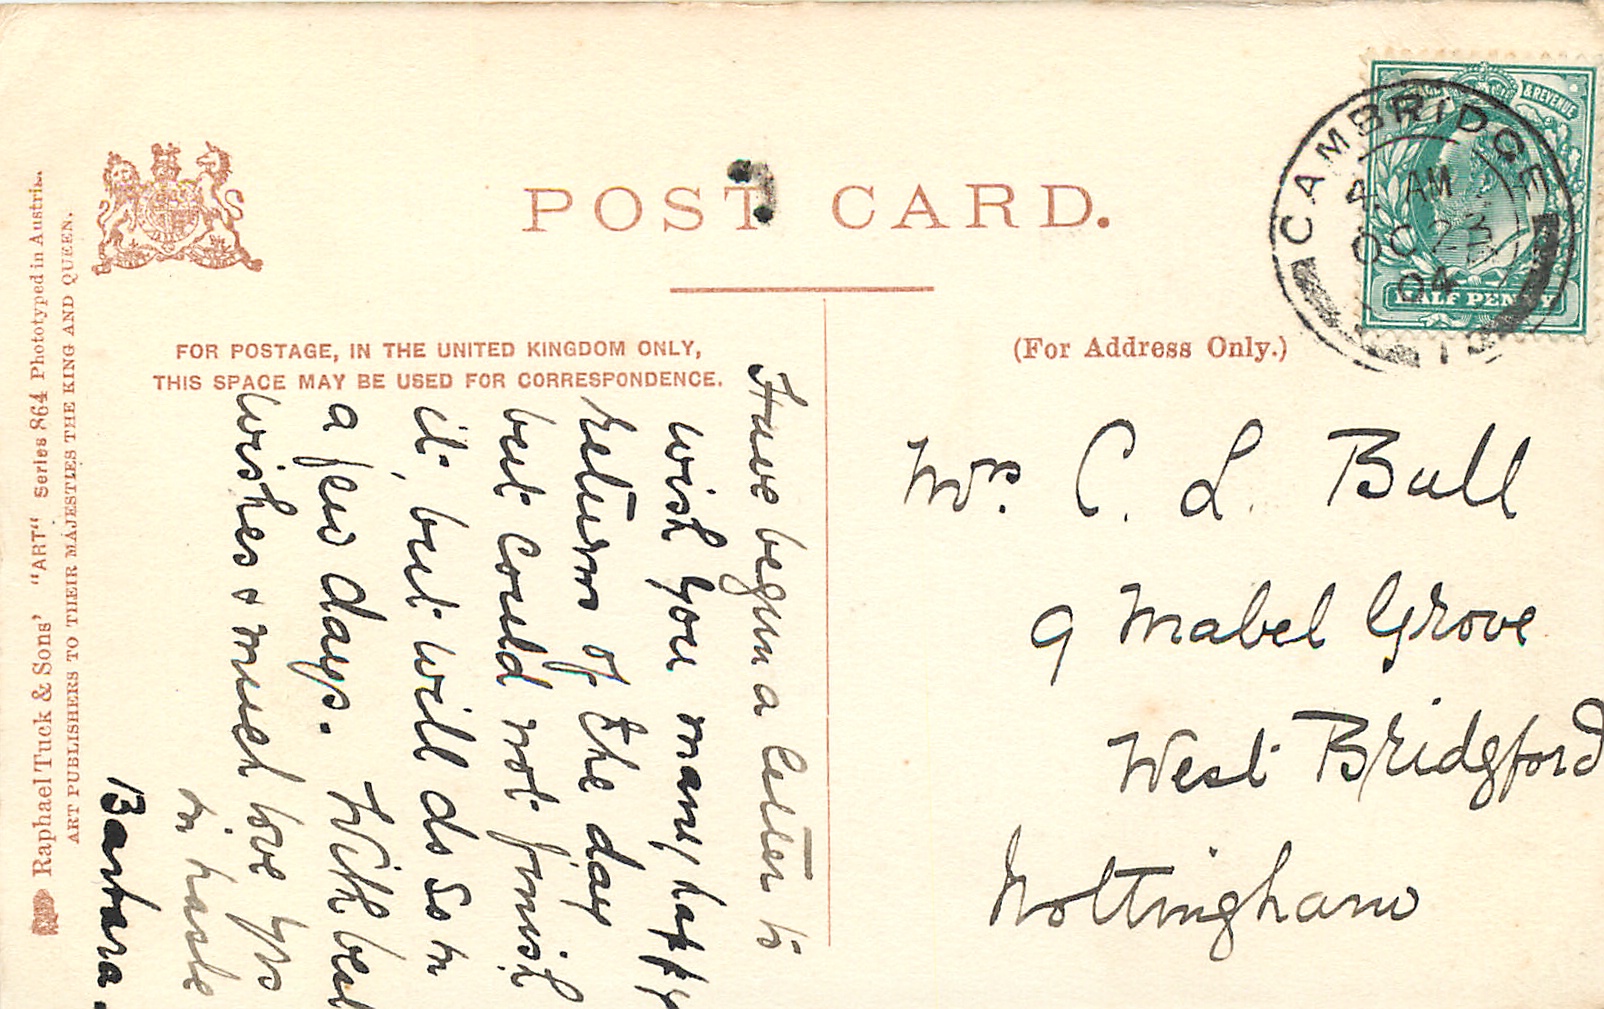 POST CARD.
FOR POSTAGE, IN THE UNITED KINGDOM ONLY,
THIS SPACE MAY BE USED FOR CORRESPONDENCE.
(For Address Only.)
Raphael Tuck & Sons' "ART" Series 864 Phototyped in Austri
ART PUBLISHERS TO THEIR MAJESTIES THE KING AND QUEEN.
Have begun a letter to
wish you many happy
returns of the day
but could not finish
it, but will do so in
a few days. With best
wishes & much love yrs
in haste
Barbara.
& REVENUE
HALF PENNY
CAMBRIDGE
AM
OC 2
04
Mrs. C. L. Bull
9 Mabel Grove
West Bridgford
Nottingham